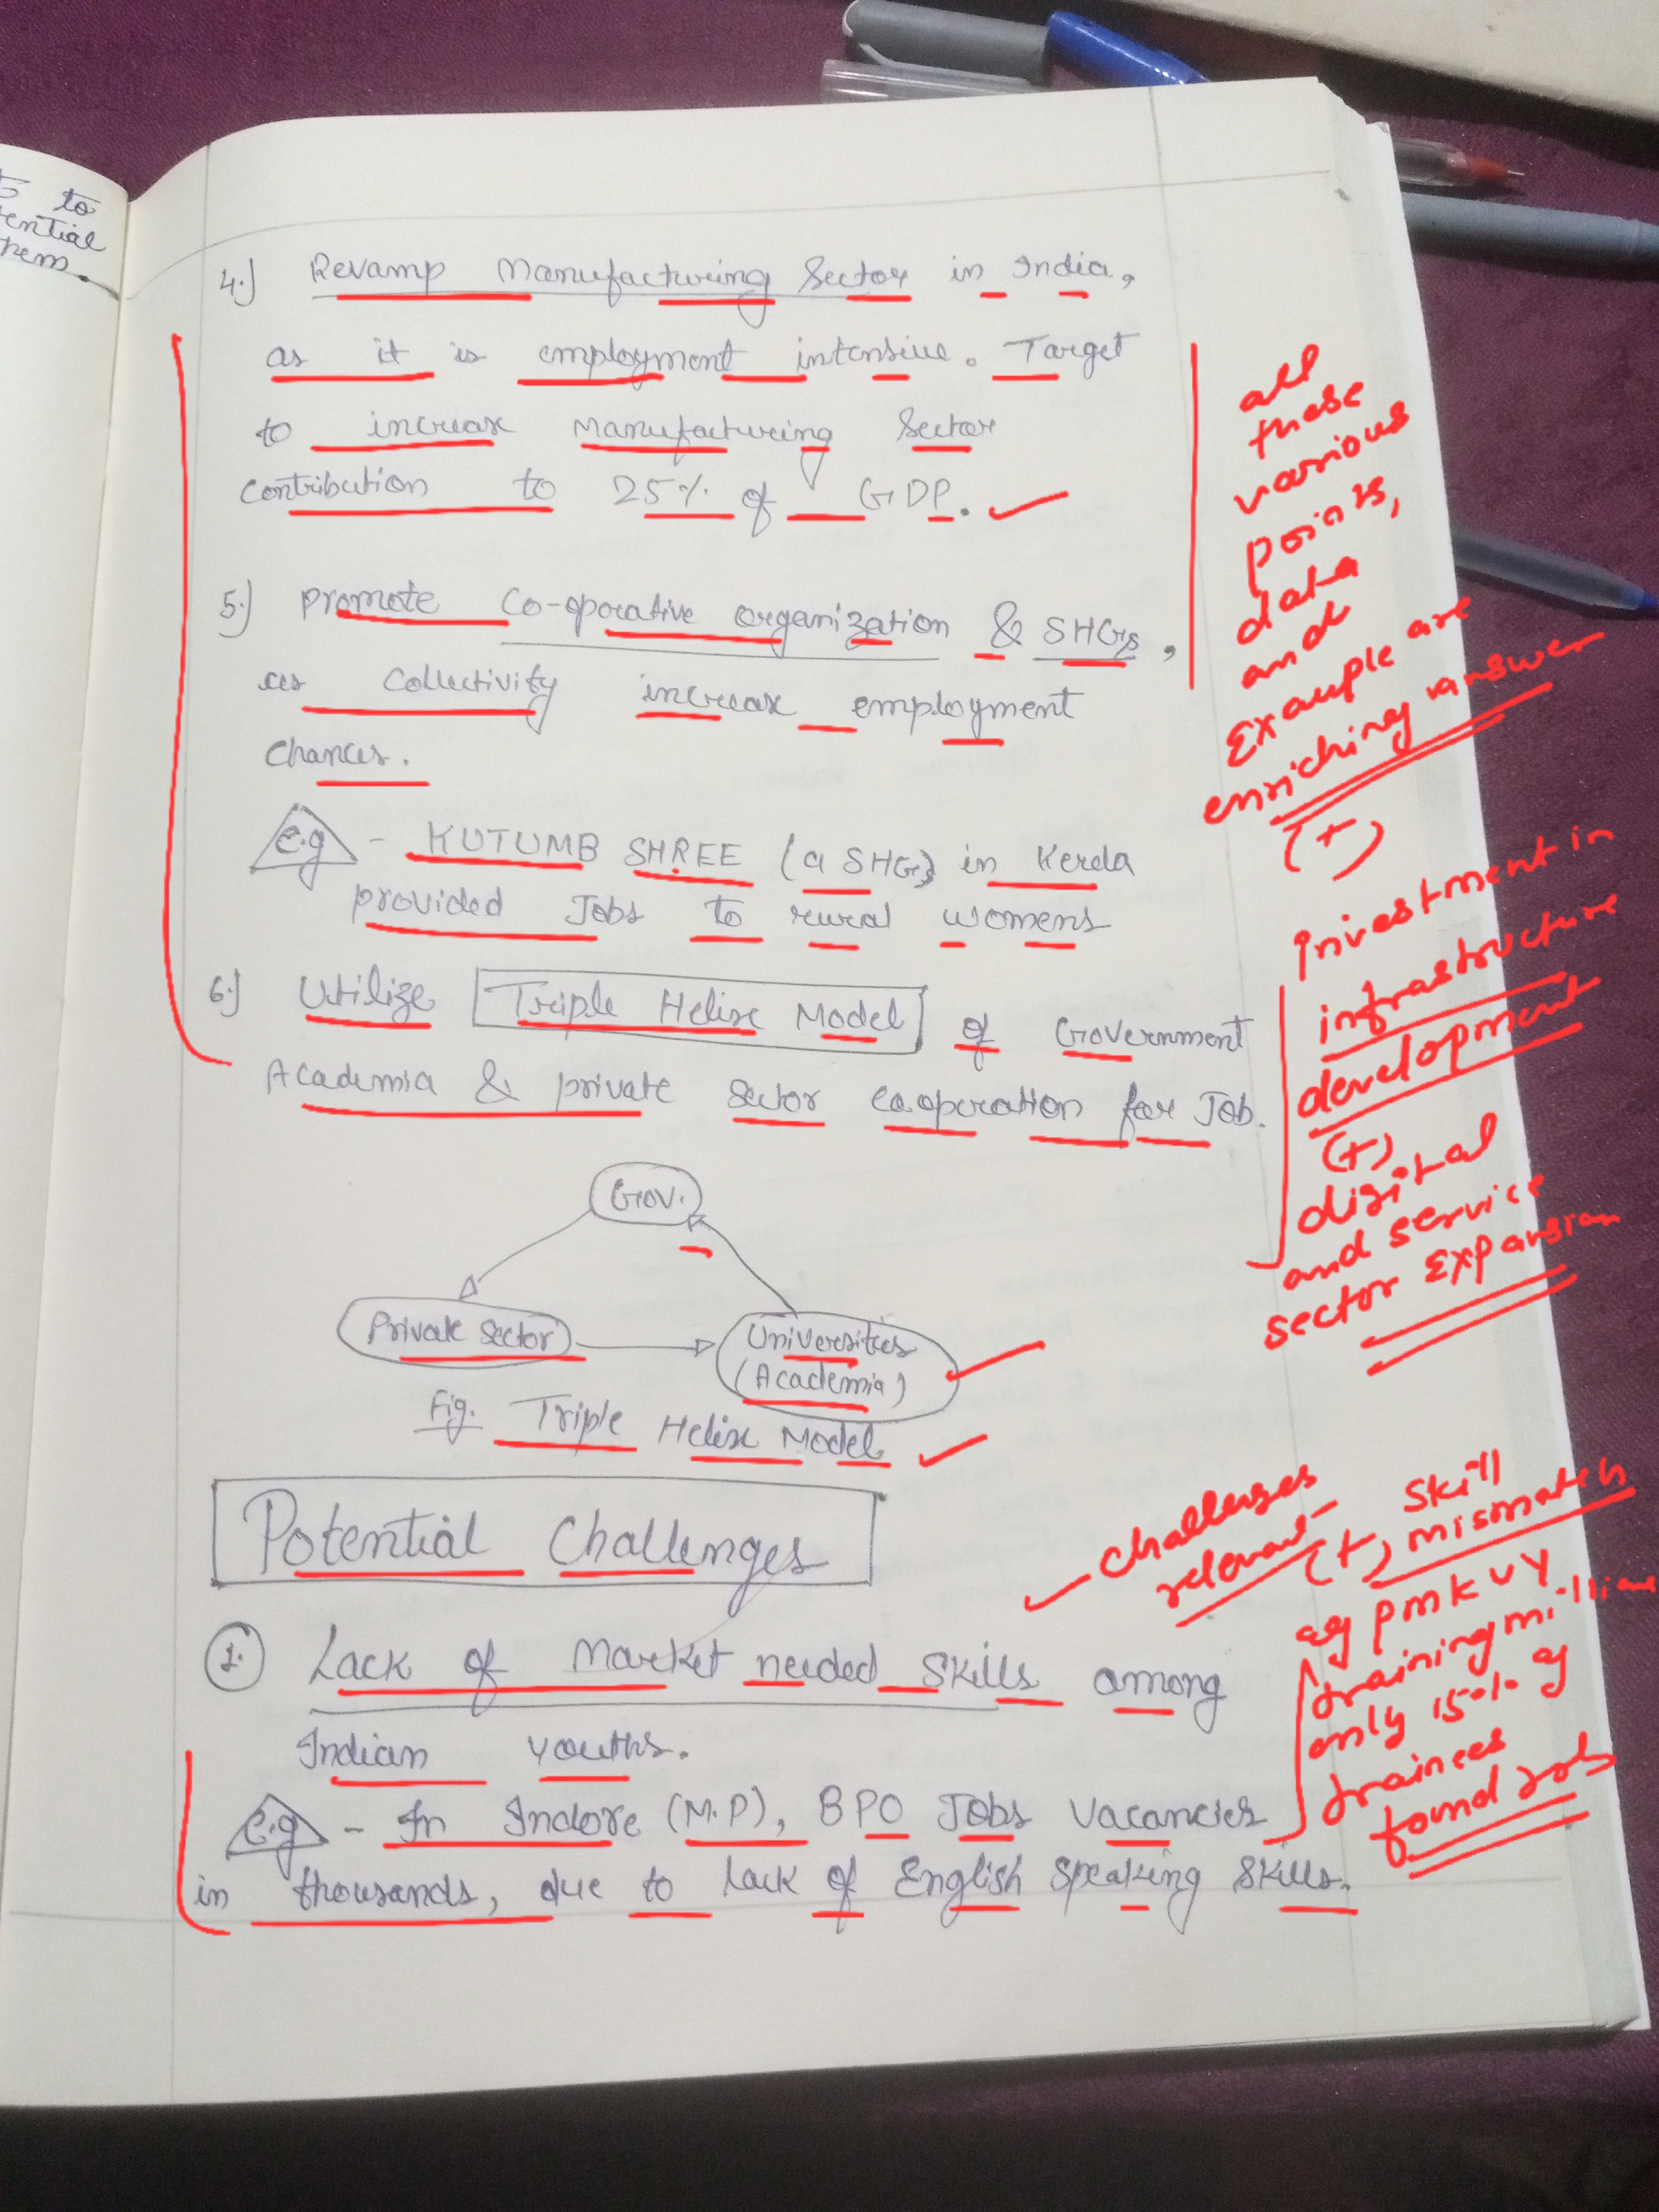 to
ential
4.) Revamp Manufacturing Sector in India,
as it is employment intensive. Target
to increase Manufacturing Sector
Contribution to 25% of GDP.
5.) Promote Co-operative organization & SHGs,
as Collectivity increase employment
Chances.
e.g - KUTUMB SHREE (a SHG) in Kerela
provided Jobs to rural womens
6.) Utilize Triple Helix Model of Government
Academia & private sector cooperation for Job.
Gov.
Private Sector
Universities
(Academia)
Fig. Triple Helix Model
Potential Challenges
1. Lack of Market needed Skills among
Indian youths.
e.g - In Indore (M.P), BPO Jobs Vacancies
in thousands, due to lack of English Speaking Skills.
all
these
various
points,
data
and
Example are
enriching answer
(+)
Investment in
infrastructure
development
(+)
digital
and service
sector Expansion
challenges
relevant
(+) Skill
mismatch
eg PMKVY
training millions
only 15% of
trainees
found Job